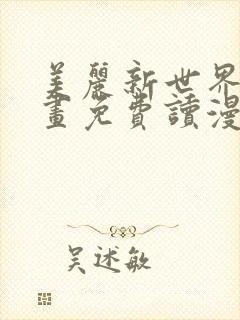 美麗新世界
畫免費讀漫
吴述敏